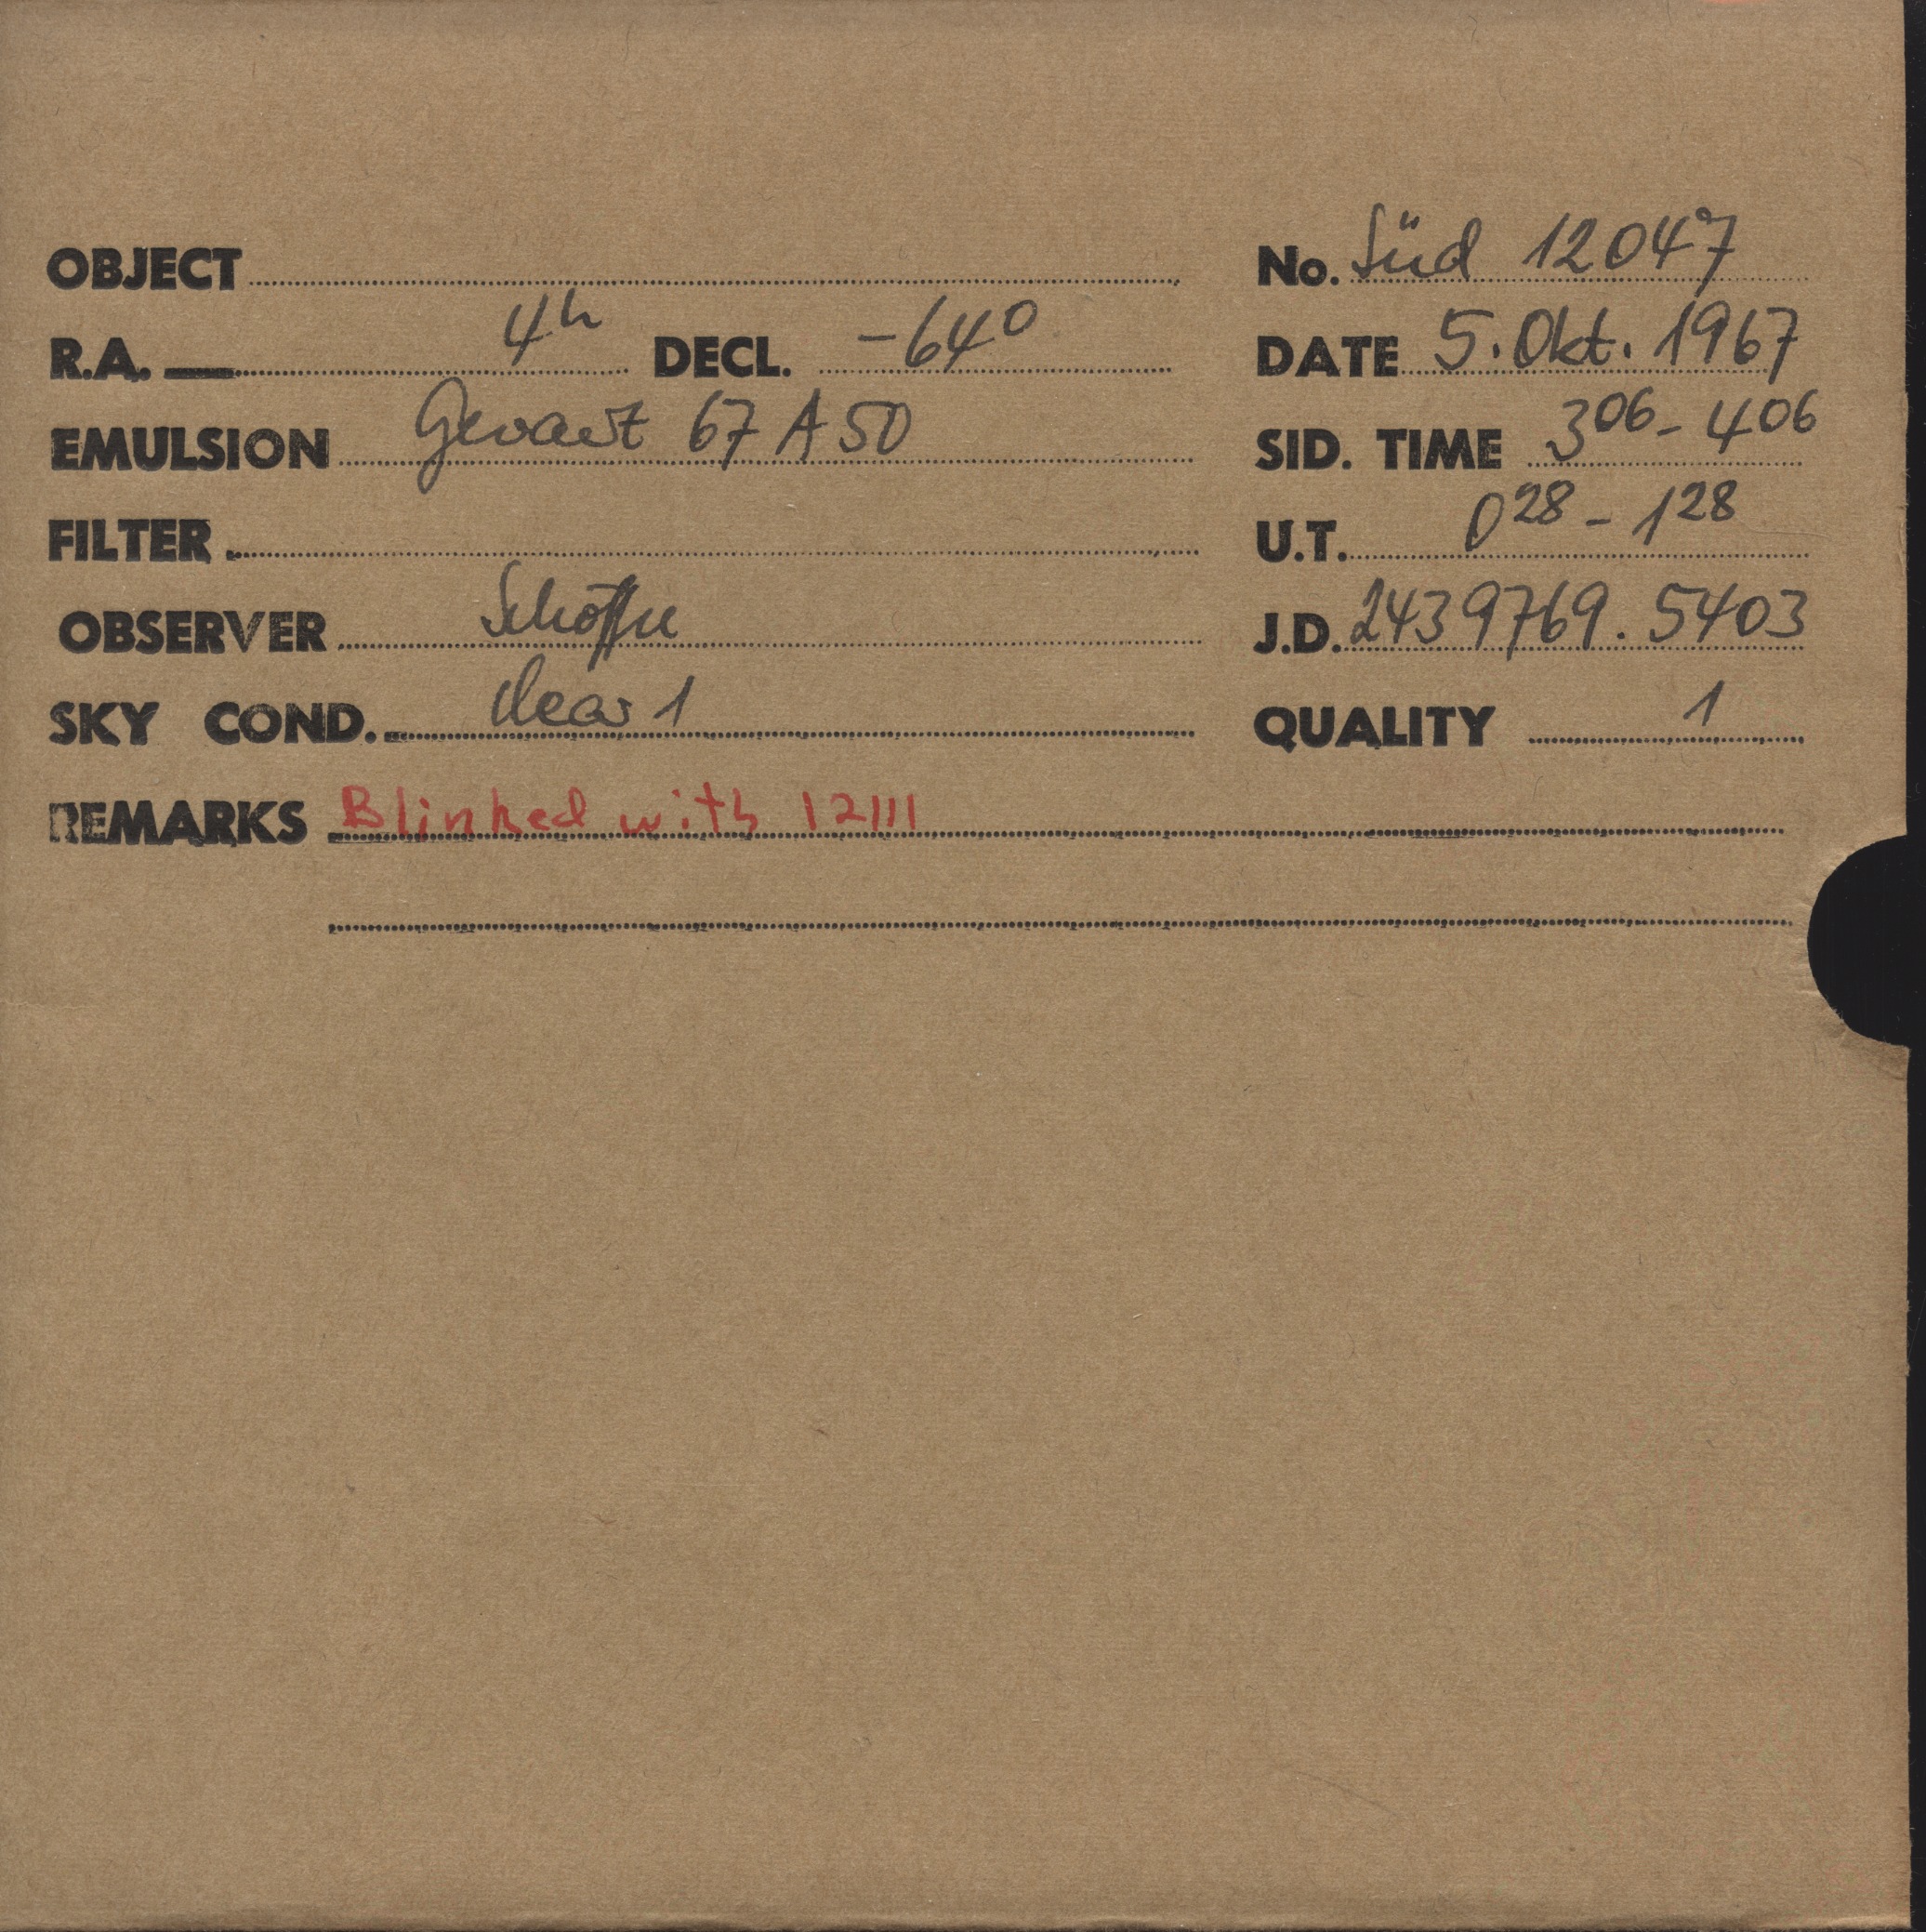 OBJECT
No. Süd 12047
R.A. 4h DECL. -64°
DATE 5. Okt. 1967
EMULSION Gevaert 67 A 50
SID. TIME 3 06 - 4 06
FILTER
U.T. 0 28 - 1 28
OBSERVER
J.D. 2439769.5403
SKY COND. clear 1
QUALITY 1
REMARKS Blinked with 12111